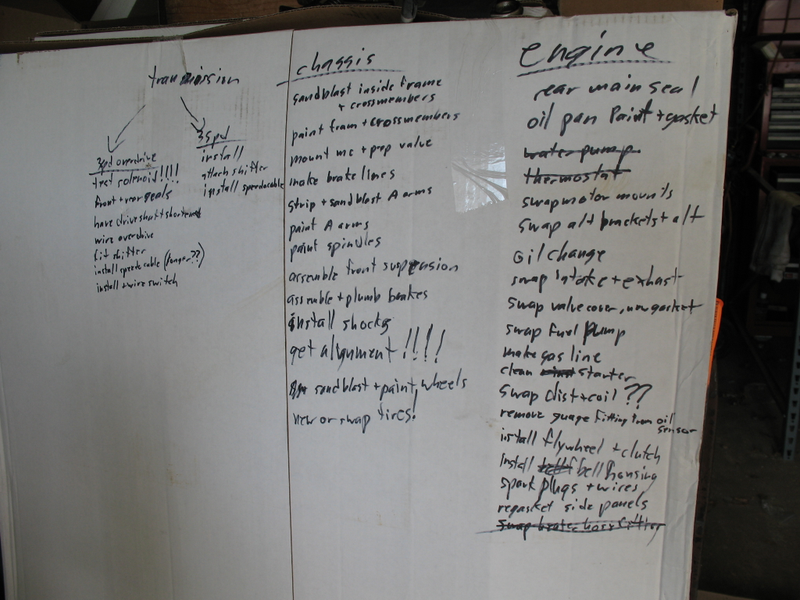 transmission
3spd overdrive
test solenoid!!!!
front + rear seals
have driveshaft shortened
wire overdrive
fit shifter
install speedo cable (longer??)
install + wire switch
3spd
install
attach shifter
install speedocable
chassis
sandblast inside frame
+ crossmembers
paint fram + crossmembers
mount mc + prop valve
make brake lines
strip + sandblast A arms
paint A arms
paint spindles
assemble front suspension
assemble + plumb brakes
install shocks
get alignment!!!!
sandblast + paint wheels
new or swap tires!
engine
rear main seal
oil pan Paint + gasket
water pump
thermostat
swap motor mounts
Swap alt brackets + alt
oil change
swap intake + exhast
swap valve cover, new gasket
swap fuel pump
make gas line
clean starter
Swap dist + coil ??
remove guage fitting from oil
sensor
install flywheel + clutch
Install bell housing
spark plugs + wires
regasket side panels
swap heater hose fitting